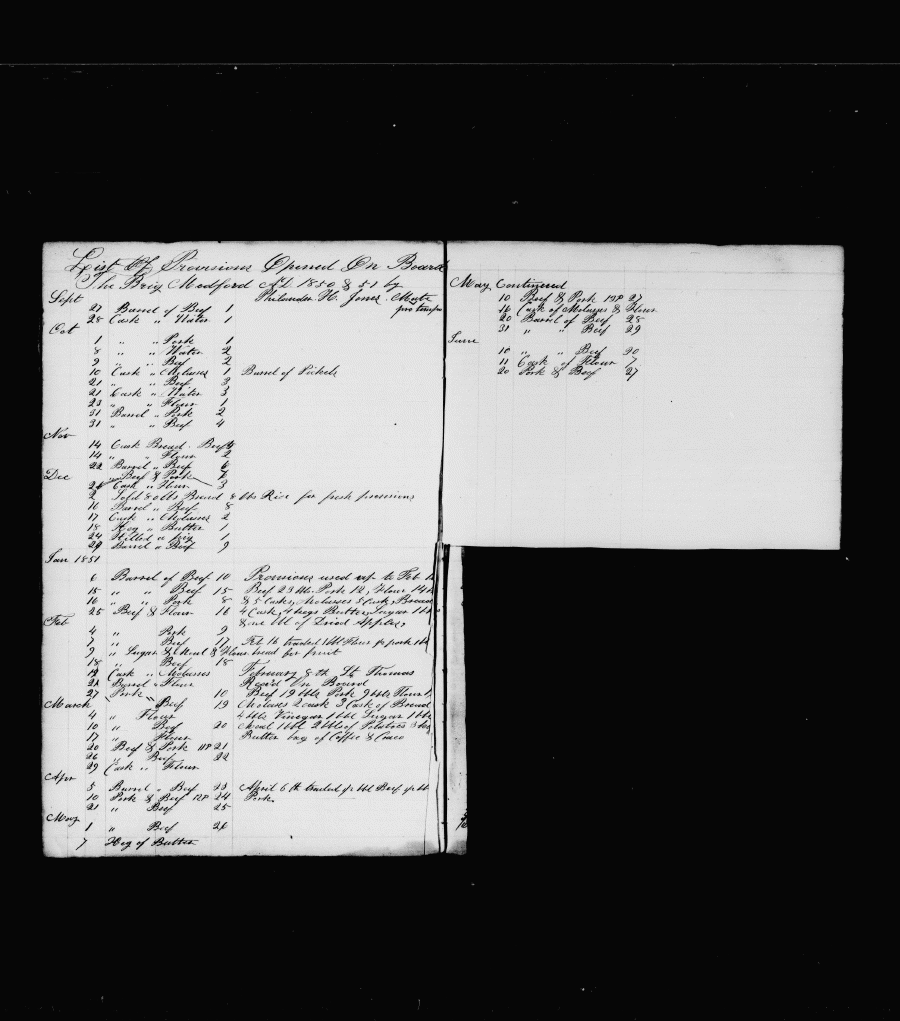 List Of Provisions Opened On Board
The Brig Medford AD. 1850 & 51 by
Philander H. Jones. Mate
pro tempr
Sept
27 Barrel of Beef 1
28 Cask " Water 1
Oct
1 " " Pork 1
8 " " Water 2
9 " " Beef 2
10 Cask " Molasses 1 Barrel of Pickels
21 " " Beef 3
21 Cask " Water 3
23 " " Flour 1
31 Barrel " Pork 2
31 " " Beef 4
Nov
14 Cask Bread. Beef
14 " " Flour 2
22 Barrel " Beef 6
Dec
" Beef & Pork 7
Cask " Flour 3
2 Sold 80 lbs Bread & lbs Rice for fresh provisions
16 Barrel " Beef 8
17 Cask " Molasses 2
18 Keg " Butter 1
24 Killed a pig 1
29 Barrel " Beef 9
Jan 1851
6 Barrel of Beef 10 Provisions used up to Feb
15 " " Beef 15 Beef 23 bbls. Pork 12, Flour 14
16 " " Pork 8 & 5 Casks, Molasses 5 Cask, Bread
25 Beef & Flour 16 4 Cask, 4 kegs Butter, Sugar 1 bbl
& one bbl of Dried Apples,
Feb
4 " Pork 9
7 " Beef 17 Feb 16 traded 1 bbl Flour for pork 1 bbl
9 " Sugar & Meal & Flour traed for fruit
18 " Beef 18
19 Cask " Molasses February 8th St Thomas
21 Barrel " Flour Reac'd On Board
27 " Pork " 10 Beef 19 bbls Pork 9 bbls Flour
March " Beef 19 Molases 2 cask 3 Cask of Bread
4 " Flour 4 bbls Vinegar 1 bbl Sugar 1 bbl
10 " Beef 20 Meal 1 bbl 2 bbls of Potatoes 3 kegs
17 " Flour Butter bag of Coffee & Coaco
20 Beef & Pork 11P 21
26 " Beef 22
29 Cask " Flour
Apr
5 Barrel " Beef 23 April 6th traded for bbl Beef for bbl
10 Pork & Beef 12P 24 Pork.
21 " Beef 25
May
1 " Beef 26
7 Keg of Butter
May Continued
10 Beef & Pork 13P 27
16 Cask of Molases & Flour
20 Barrel of Beef 28
31 " " Beef 29
June
10 " " Beef 30
11 Cask of Flour 7
20 Pork & Beef 27